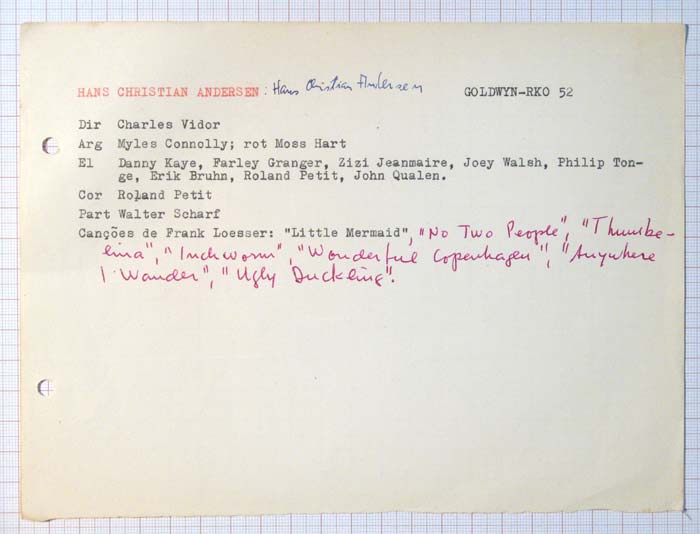 HANS CHRISTIAN ANDERSEN: Hans Christian Andersen GOLDWYN-RKO 52
Dir Charles Vidor
Arg Myles Connolly; rot Moss Hart
El Danny Kaye, Farley Granger, Zizi Jeanmaire, Joey Walsh, Philip Ton-
ge, Erik Bruhn, Roland Petit, John Qualen.
Cor Roland Petit
Part Walter Scharf
Canções de Frank Loesser: "Little Mermaid", "No Two People", "Thumbe-
lina", "Inchworm", "Wonderful Copenhagen", "Anywhere
I Wander", "Ugly Duckling".